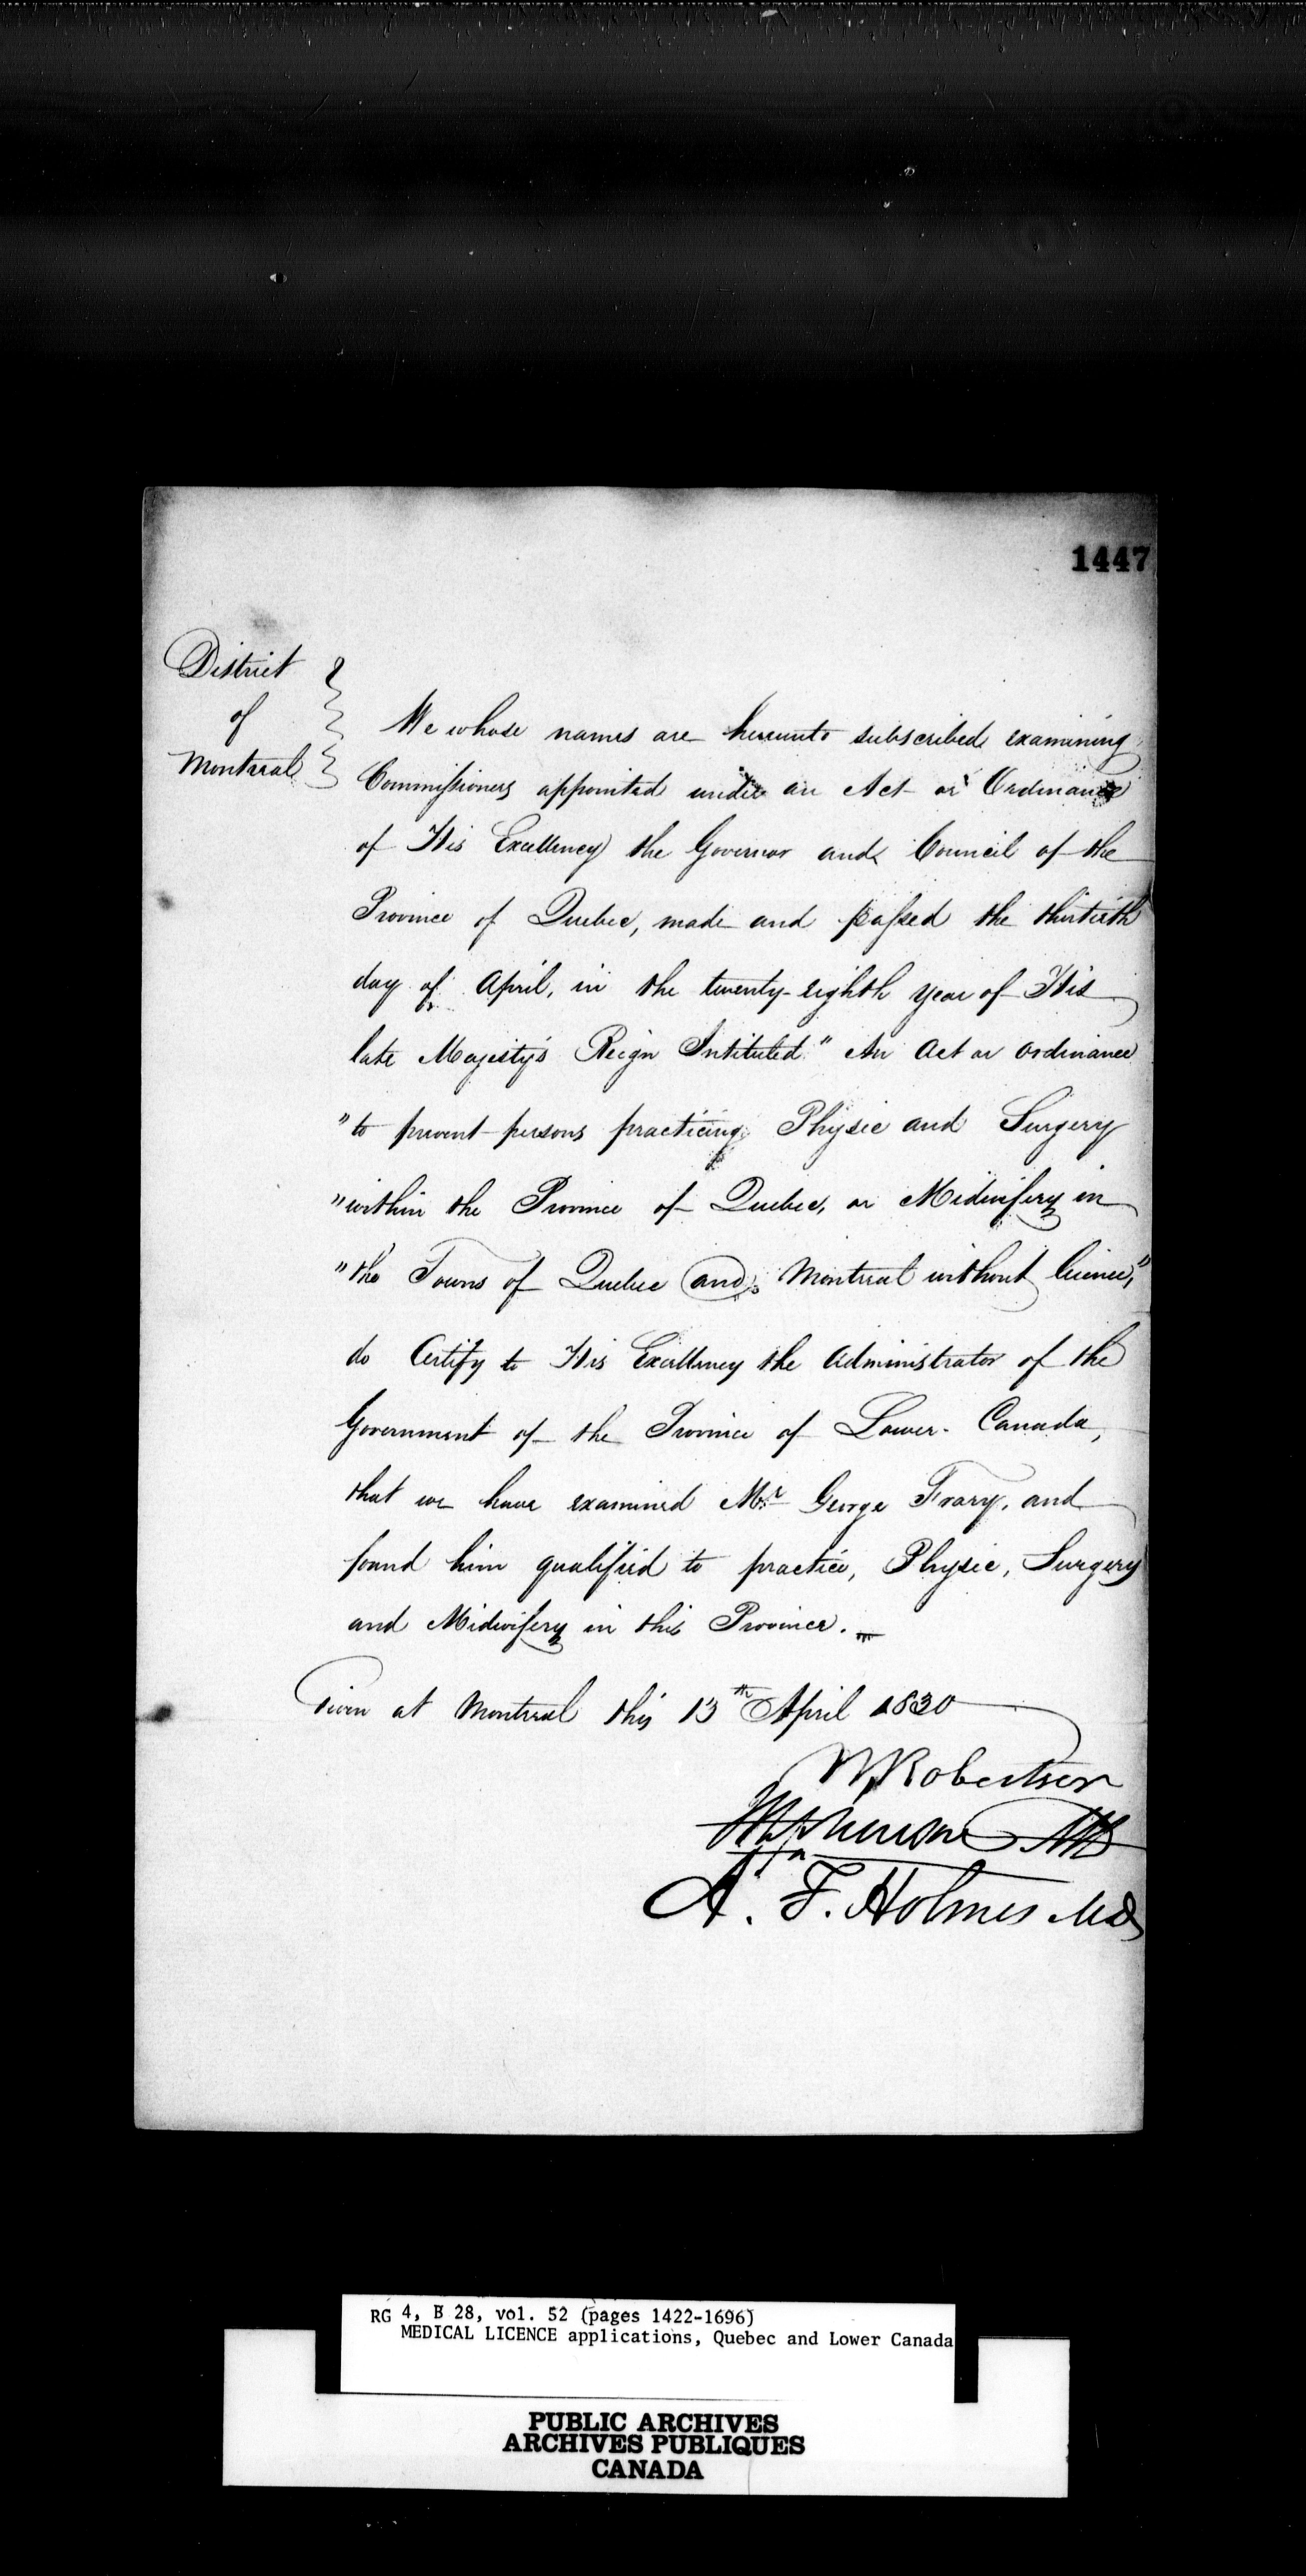 1447
District
of
Montreal
We whose names are hereunto subscribed examining
Commissioners appointed under an Act or Ordinance
of His Excellency the Governor and Council of the
Province of Quebec, made and passed the thirtieth
day of April, in the twenty-eighth year of His
late Majesty's Reign Intituled "An Act or ordinance
"to prevent persons practicing Physic and Surgery
"within the Province of Quebec, or Midwifery in
"the Towns of Quebec and Montreal without licence,"
do Certify to His Excellency the Administrator of the
Government of the Province of Lower-Canada,
that we have examined Mr George Frary, and
found him qualified to practice, Physic, Surgery
and Midwifery in this Province.
Given at Montreal this 13th April 1830
W Robertson
MD
A. F. Holmes MD
RG 4, B 28, vol. 52 (pages 1422-1696)
MEDICAL LICENCE applications, Quebec and Lower Canada
PUBLIC ARCHIVES
ARCHIVES PUBLIQUES
CANADA